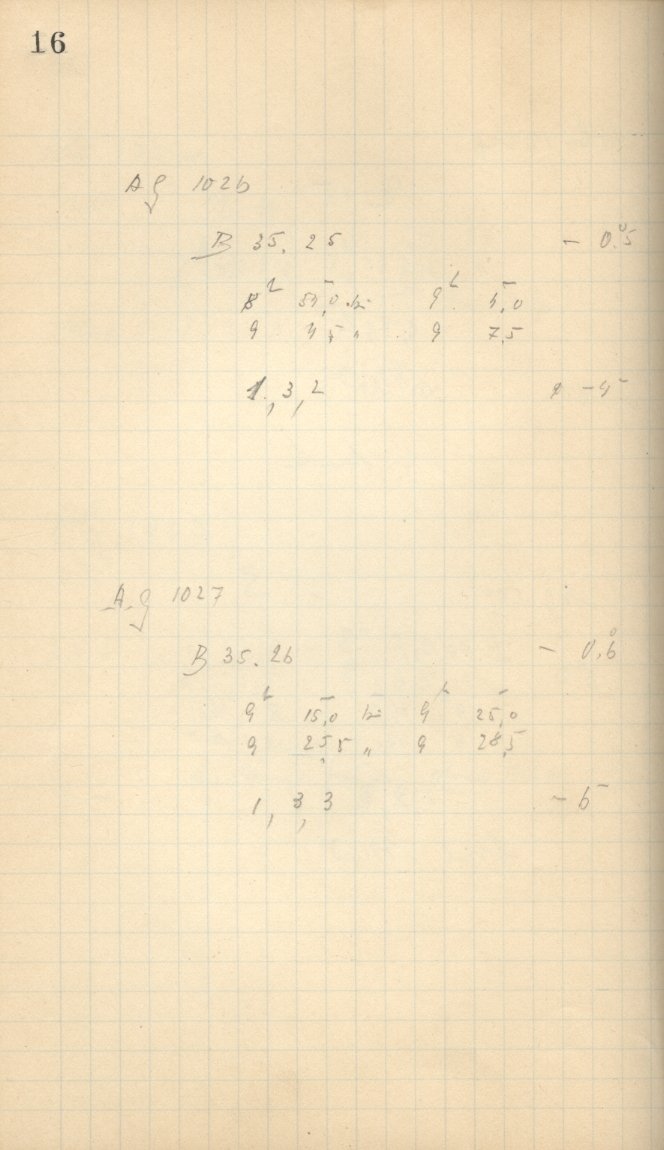 16
Ag 1026
B 35.25 – 0.°5
8ʰ 54,0 bis 9ʰ 4,0
9 4,5 „ 9 7,5
1, 3, 2 – 4
Ag 1027
B 35.26 – 0.°6
9ʰ 15,0 bis 9ʰ 25,0
9 25,5 „ 9 28,5
1, 3, 3 – 6